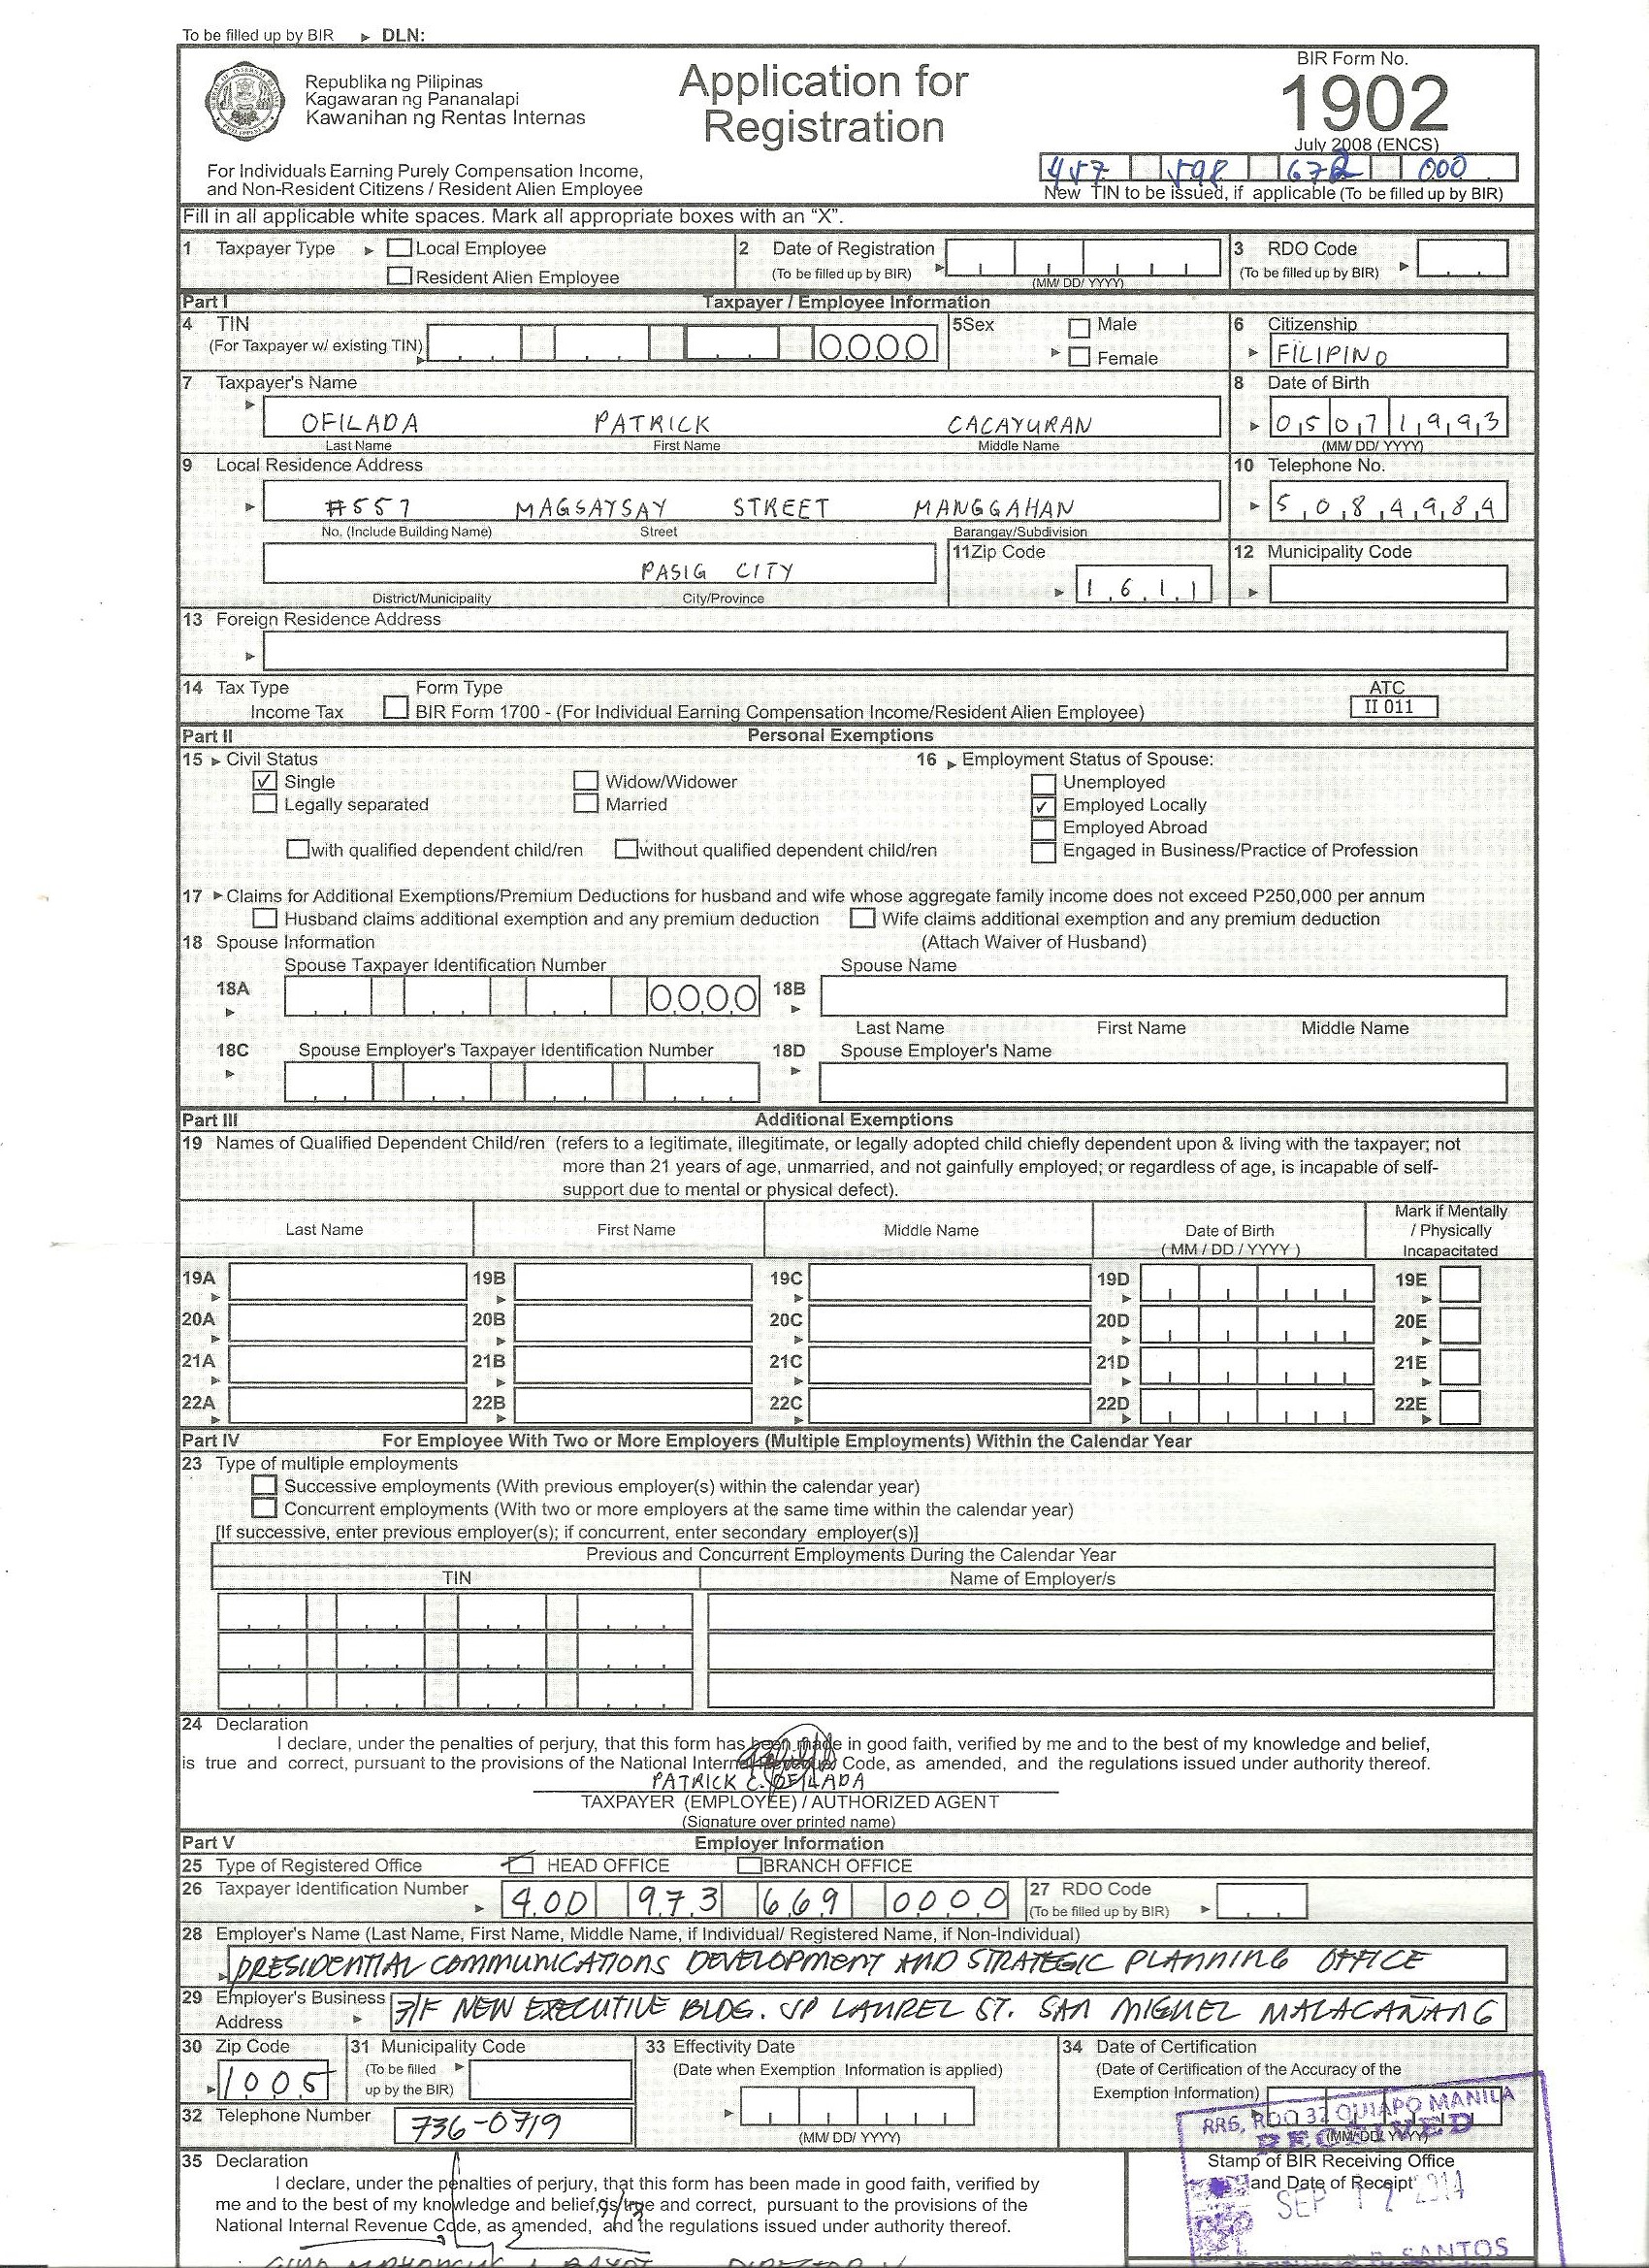 To be filled up by BIR ▸ DLN:
Republika ng Pilipinas
Kagawaran ng Pananalapi
Kawanihan ng Rentas Internas
Application for
Registration
BIR Form No.
1902
July 2008 (ENCS)
For Individuals Earning Purely Compensation Income,
and Non-Resident Citizens / Resident Alien Employee
457 598 672 000
New TIN to be issued, if applicable (To be filled up by BIR)
Fill in all applicable white spaces. Mark all appropriate boxes with an "X".
1 Taxpayer Type ▸ Local Employee
Resident Alien Employee
2 Date of Registration
(To be filled up by BIR)
(MM/ DD/ YYYY)
3 RDO Code
(To be filled up by BIR)
Part I Taxpayer / Employee Information
4 TIN
(For Taxpayer w/ existing TIN)
0000
5 Sex Male
Female
6 Citizenship
FILIPINO
7 Taxpayer's Name
OFILADA PATRICK CACAYURAN
Last Name First Name Middle Name
8 Date of Birth
05071993
(MM/ DD/ YYYY)
9 Local Residence Address
#557 MAGSAYSAY STREET MANGGAHAN
No. (Include Building Name) Street Barangay/Subdivision
10 Telephone No.
5084984
PASIG CITY
District/Municipality City/Province
11 Zip Code
1611
12 Municipality Code
13 Foreign Residence Address
14 Tax Type Form Type ATC
Income Tax BIR Form 1700 - (For Individual Earning Compensation Income/Resident Alien Employee) II 011
Part II Personal Exemptions
15 ▸ Civil Status
✓ Single Widow/Widower
Legally separated Married
with qualified dependent child/ren without qualified dependent child/ren
16 ▸ Employment Status of Spouse:
Unemployed
✓ Employed Locally
Employed Abroad
Engaged in Business/Practice of Profession
17 ▸ Claims for Additional Exemptions/Premium Deductions for husband and wife whose aggregate family income does not exceed P250,000 per annum
Husband claims additional exemption and any premium deduction Wife claims additional exemption and any premium deduction
18 Spouse Information (Attach Waiver of Husband)
Spouse Taxpayer Identification Number Spouse Name
18A 0000 18B
Last Name First Name Middle Name
18C Spouse Employer's Taxpayer Identification Number 18D Spouse Employer's Name
Part III Additional Exemptions
19 Names of Qualified Dependent Child/ren (refers to a legitimate, illegitimate, or legally adopted child chiefly dependent upon & living with the taxpayer; not
more than 21 years of age, unmarried, and not gainfully employed; or regardless of age, is incapable of self-
support due to mental or physical defect).
Last Name First Name Middle Name Date of Birth
( MM / DD / YYYY )
Mark if Mentally
/ Physically
Incapacitated
19A 19B 19C 19D 19E
20A 20B 20C 20D 20E
21A 21B 21C 21D 21E
22A 22B 22C 22D 22E
Part IV For Employee With Two or More Employers (Multiple Employments) Within the Calendar Year
23 Type of multiple employments
Successive employments (With previous employer(s) within the calendar year)
Concurrent employments (With two or more employers at the same time within the calendar year)
[If successive, enter previous employer(s); if concurrent, enter secondary employer(s)]
Previous and Concurrent Employments During the Calendar Year
TIN Name of Employer/s
24 Declaration
I declare, under the penalties of perjury, that this form has been made in good faith, verified by me and to the best of my knowledge and belief,
is true and correct, pursuant to the provisions of the National Internal Revenue Code, as amended, and the regulations issued under authority thereof.
PATRICK C. OFILADA
TAXPAYER (EMPLOYEE) / AUTHORIZED AGENT
(Signature over printed name)
Part V Employer Information
25 Type of Registered Office HEAD OFFICE BRANCH OFFICE
26 Taxpayer Identification Number 400 973 669 0000
27 RDO Code
(To be filled up by BIR)
28 Employer's Name (Last Name, First Name, Middle Name, if Individual/ Registered Name, if Non-Individual)
PRESIDENTIAL COMMUNICATIONS DEVELOPMENT AND STRATEGIC PLANNING OFFICE
29 Employer's Business
Address
3/F NEW EXECUTIVE BLDG. JP LAUREL ST. SAN MIGUEL MALACAÑANG
30 Zip Code
1005
31 Municipality Code
(To be filled
up by the BIR)
32 Telephone Number 736-0719
33 Effectivity Date
(Date when Exemption Information is applied)
(MM/ DD/ YYYY)
34 Date of Certification
(Date of Certification of the Accuracy of the
Exemption Information)
(MM/ DD/ YYYY)
RR6, RDO 32 QUIAPO MANILA
RECEIVED
35 Declaration
I declare, under the penalties of perjury, that this form has been made in good faith, verified by
me and to the best of my knowledge and belief, is true and correct, pursuant to the provisions of the
National Internal Revenue Code, as amended, and the regulations issued under authority thereof.
Stamp of BIR Receiving Office
and Date of Receipt
SEP 12 2014
SANTOS